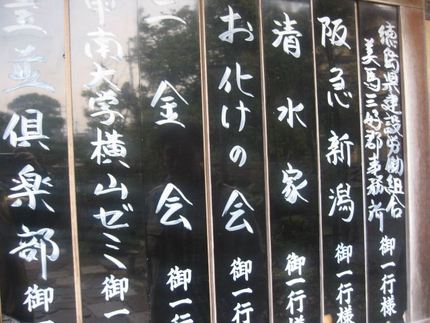 徳島県建設労働組合
美馬三好郡事務所 御一行様
阪急新潟 御一行様
清水家 御一行様
お化けの会 御一行様
三金会 御一行
甲南大学横山ゼミ 御一
並倶楽部 御